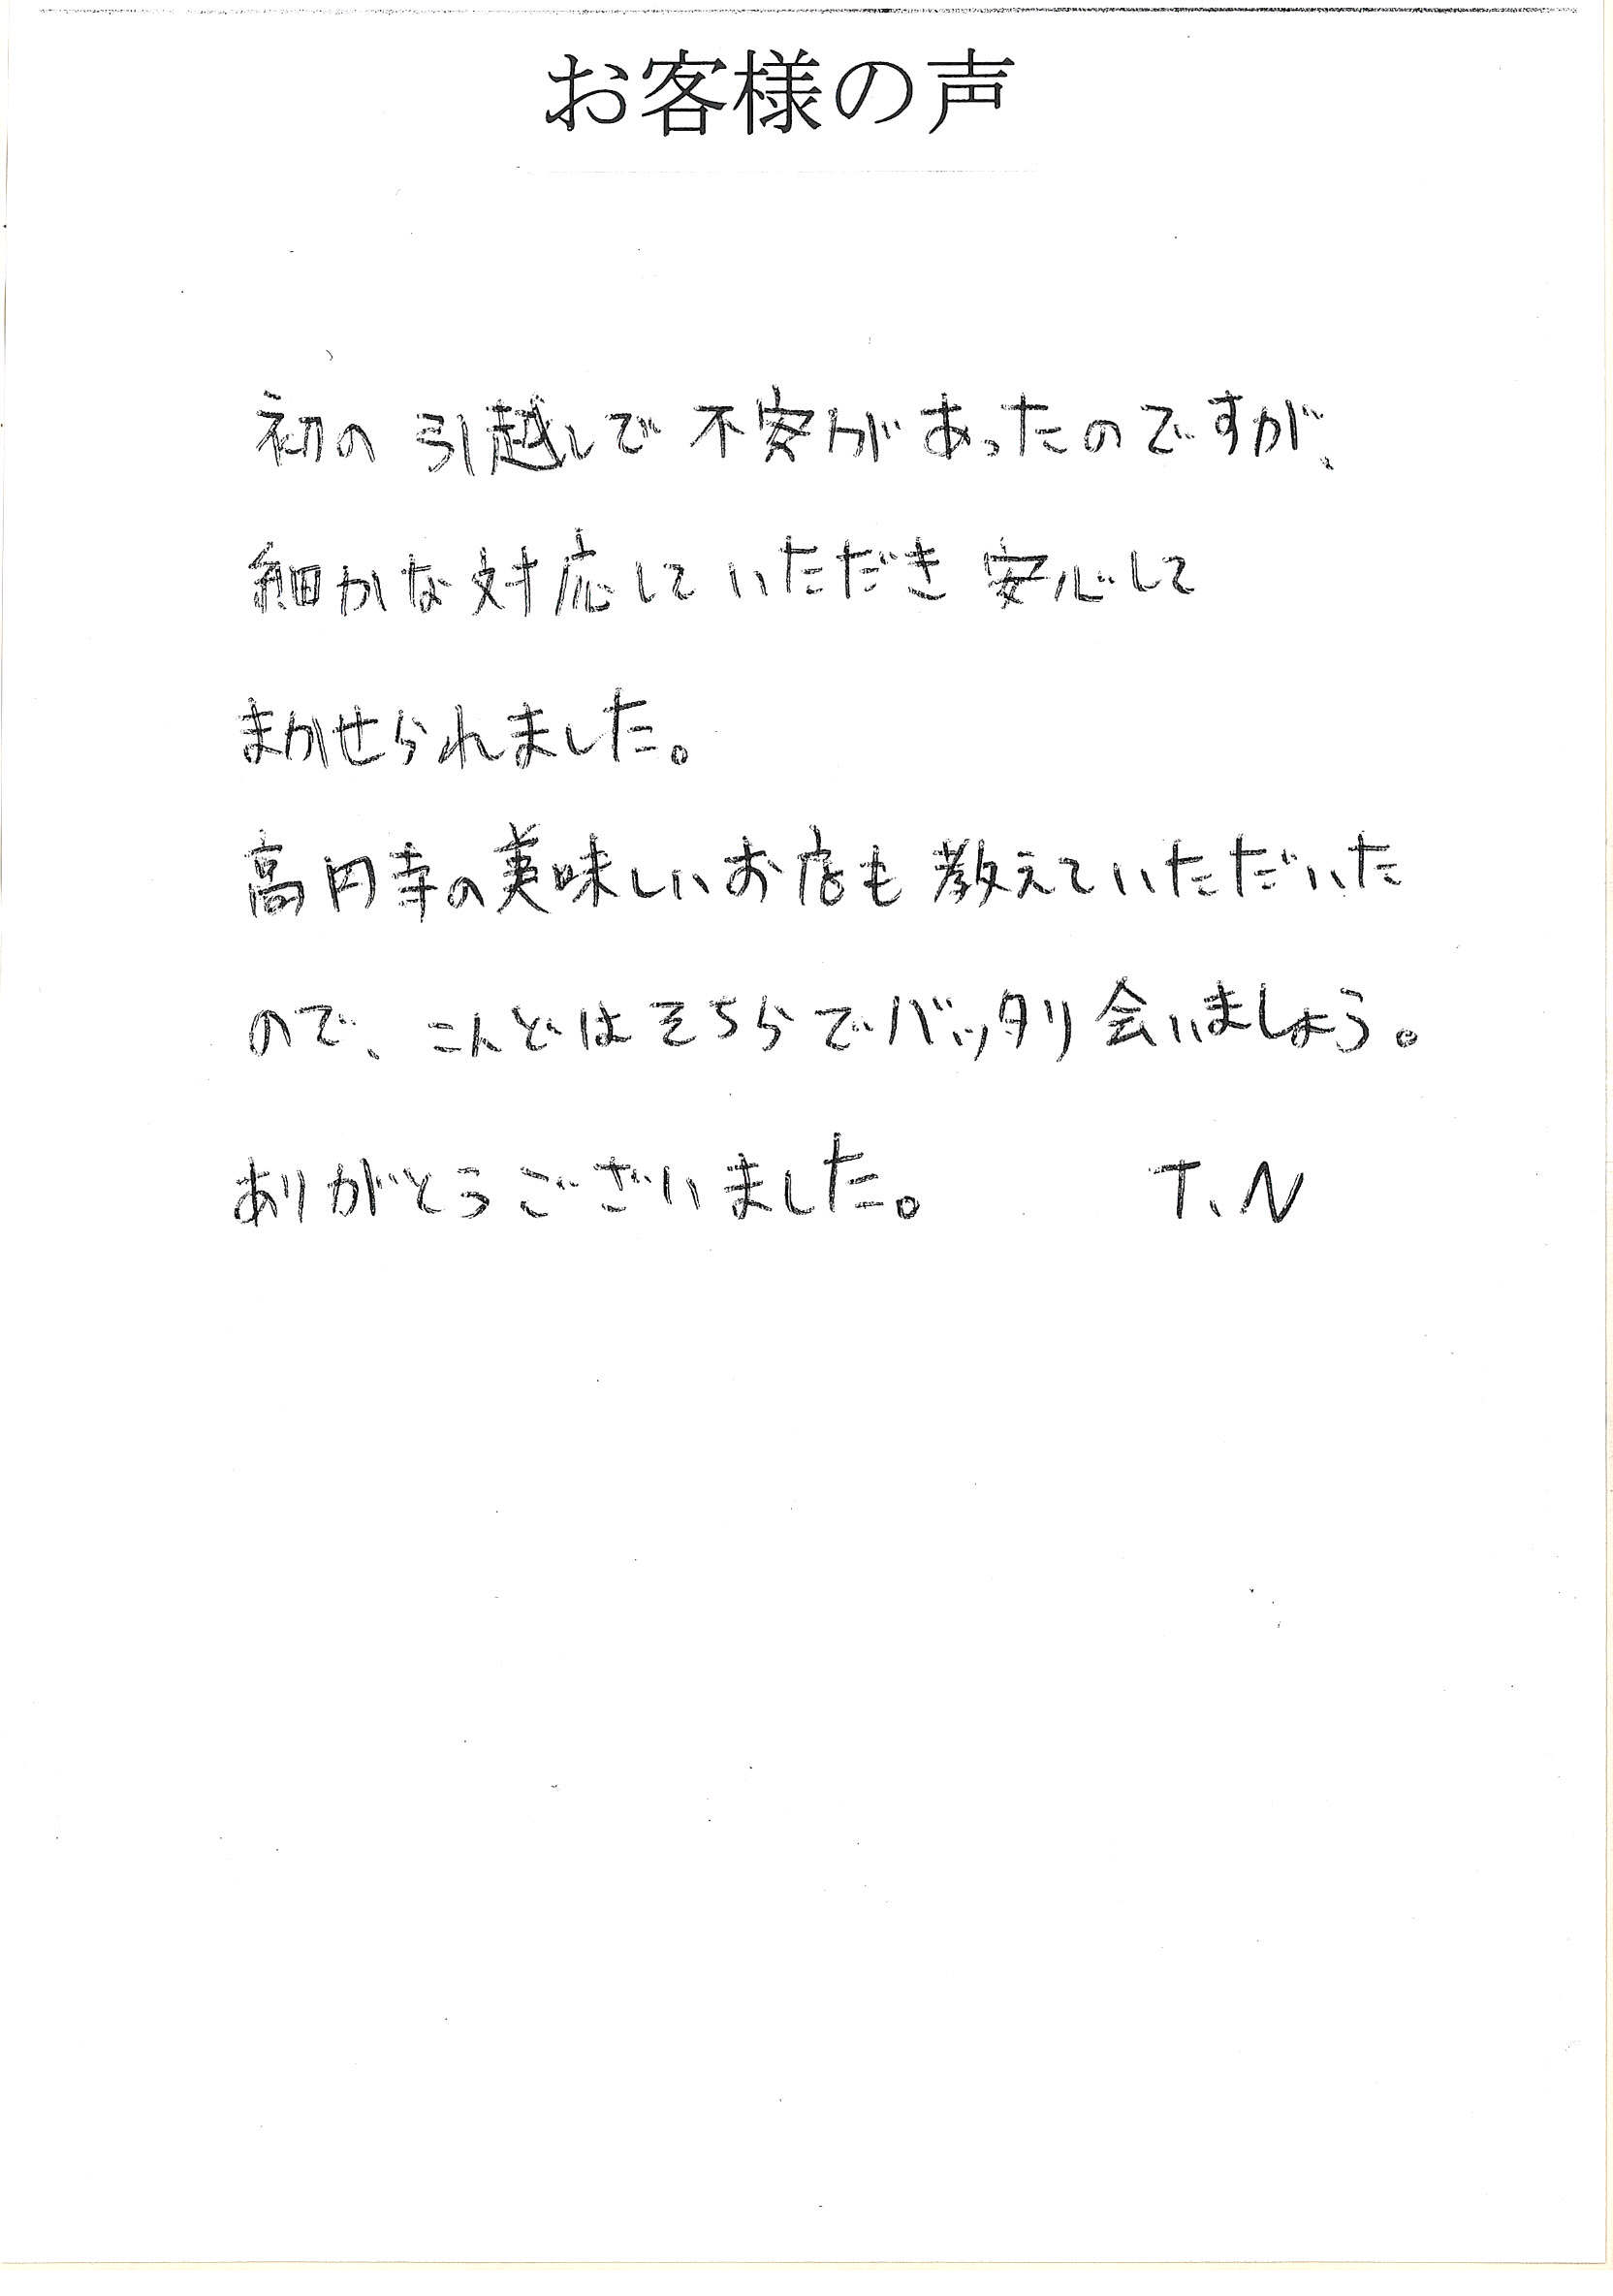 お客様の声
初の引越しで不安があったのですが、
細かな対応していただき安心して
まかせられました。
高円寺の美味しいお店も教えていただいた
ので、こんどはそちらでバッタリ会いましょう。
ありがとうございました。 T.N